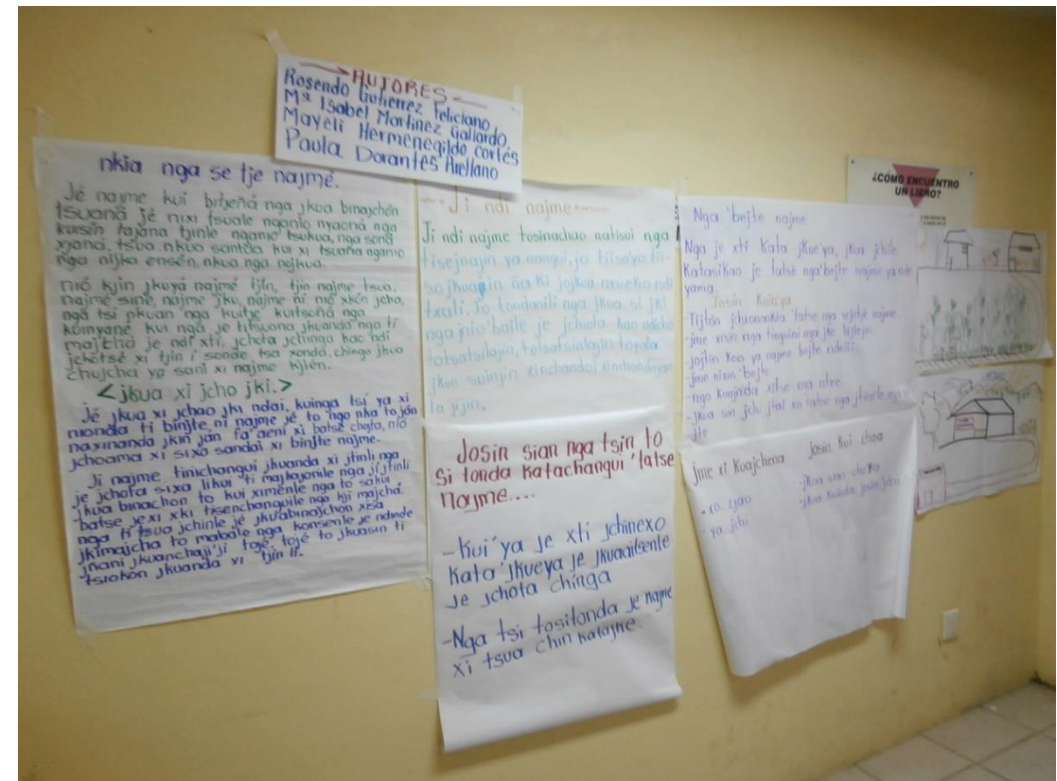 AUTORES
Rosendo Gutierrez Feliciano
Mª Isabel Martinez Gallardo.
Mayeli Hermenegildo cortés
Paula Dorantes Arellano
nkia nga se tje najmé.
Jé najme kui bitjeñá nga jkua binajchén
tsuaná jé nixi tsuale nganio nyaoná nga
kuisín tajana tjinle nganio tsukua, nga sená
xjaná, tsua nkua santda kui xi tsuaña nganio
nga nijka ensén, nkua nga nojkua.
nió kjin jkuyá najmé tjín, tjin najme tsua,
najme sine, najme jku, najme ni nió xkón jcho,
nga tsi pkuan nga kuitje kuitseñá nga
kuinyané kui ngá je titsuona jkuanda nga ti
majchá je ndí xti, jchota jchinga kao ndí
jchótsé xi tjín i sonde tsa xondá, chinga jkua
chujchai ya sani xi najme kjién.
<jkua xi jcho jki.>
Jé jkua xi jchao jki ndai, kuinga tsi ya xi
nionda ti binjte ni najme jé to ngo nka to jón
naxinanda jkin jan fa'aeni xi batsé chojta, nió
jchoama xi sixá sandai xi binjte najme.
Ji najme tinichangui jkuanda xi jtinli nga
je jchota sixa likui ti majkajonile nga ji jtinli
jkua binachon to kui ximénle nga to sakin
batse jexi xki tisenchanguile nga kji majchá.
nga ti tsua jchinle je jkuabinajchón xisa
jkimajcha to mabale nga konsenle je ndinde
jnani jkuanchaji'ji toje tojé to jkuasin ti
tsiokón jkuanda xi tjín li.
Ji ndi najme
Ji ndi najme tosinachao natisui nga
tisejnajin ya nangui, jo tiisoya tii-
so jkuapin ña ki jojkua nrueko ndi
txali. Jo tondanili nga jkua si jki
nga jnio baile je jchiota kao ndicho
totsatsilajin, totsatsinlajin toyala
jkoe suinjin xinchandai xinchandajon
to jijin.
Josin sian nga tsin to
si tonda katachangui 'latse
najme....
-kui'ya je xti jchinexo
kata 'jkueya je jkuaaitsente
je jchota chinga
-Nga tsi tositonda je najme
xi tsua chin katajne.
Nga 'bejte najme
Nga je xti kata jkue'ya, jkua jchile
katasikao je tatsé nga'bejte najme ya nde
yama.
Josin kuinya
-jme nisin 'bejte
jme xi kuajchena
josin kui choa
-ya jchi
¿CÓMO ENCUENTRO
UN LIBRO?